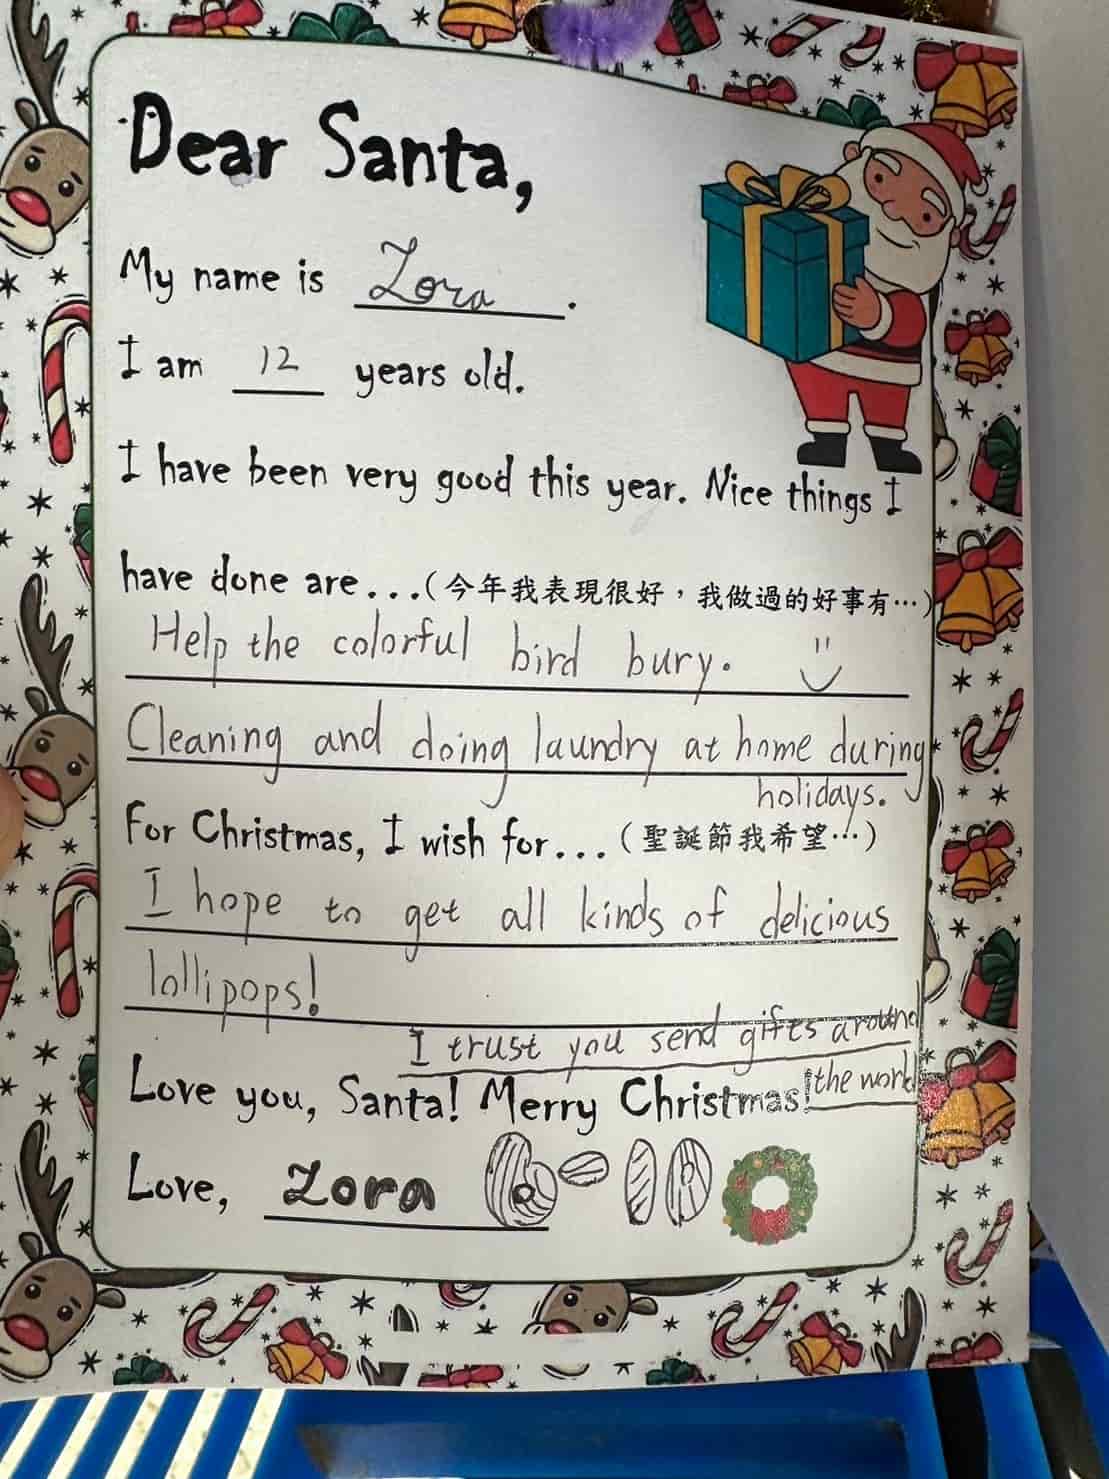 Dear Santa,
My name is Zora.
I am 12 years old.
I have been very good this year. Nice things I
have done are...(今年我表現很好，我做過的好事有…)
Help the colorful bird bury.
Cleaning and doing laundry at home during
holidays.
For Christmas, I wish for...(聖誕節我希望…)
I hope to get all kinds of delicious
lollipops!
I trust you send gifts around
the world
Love you, Santa! Merry Christmas!
Love, Zora